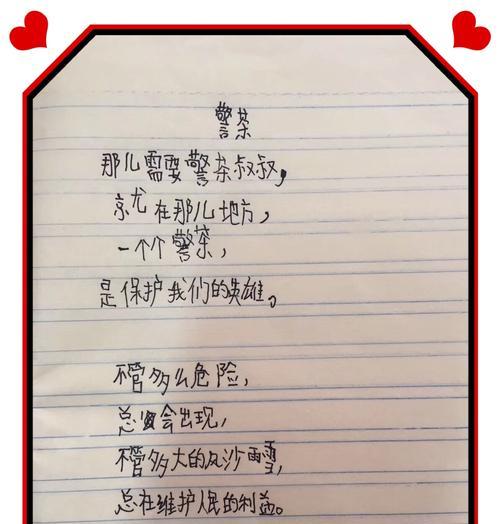 警茶
那儿需要警茶叔叔,
京尤在那儿地方,
一个个警茶,
是保护我们的英雄。
不管多么危险,
总会出现,
不管多大的风沙雨雪,
总在维护人民的利益。